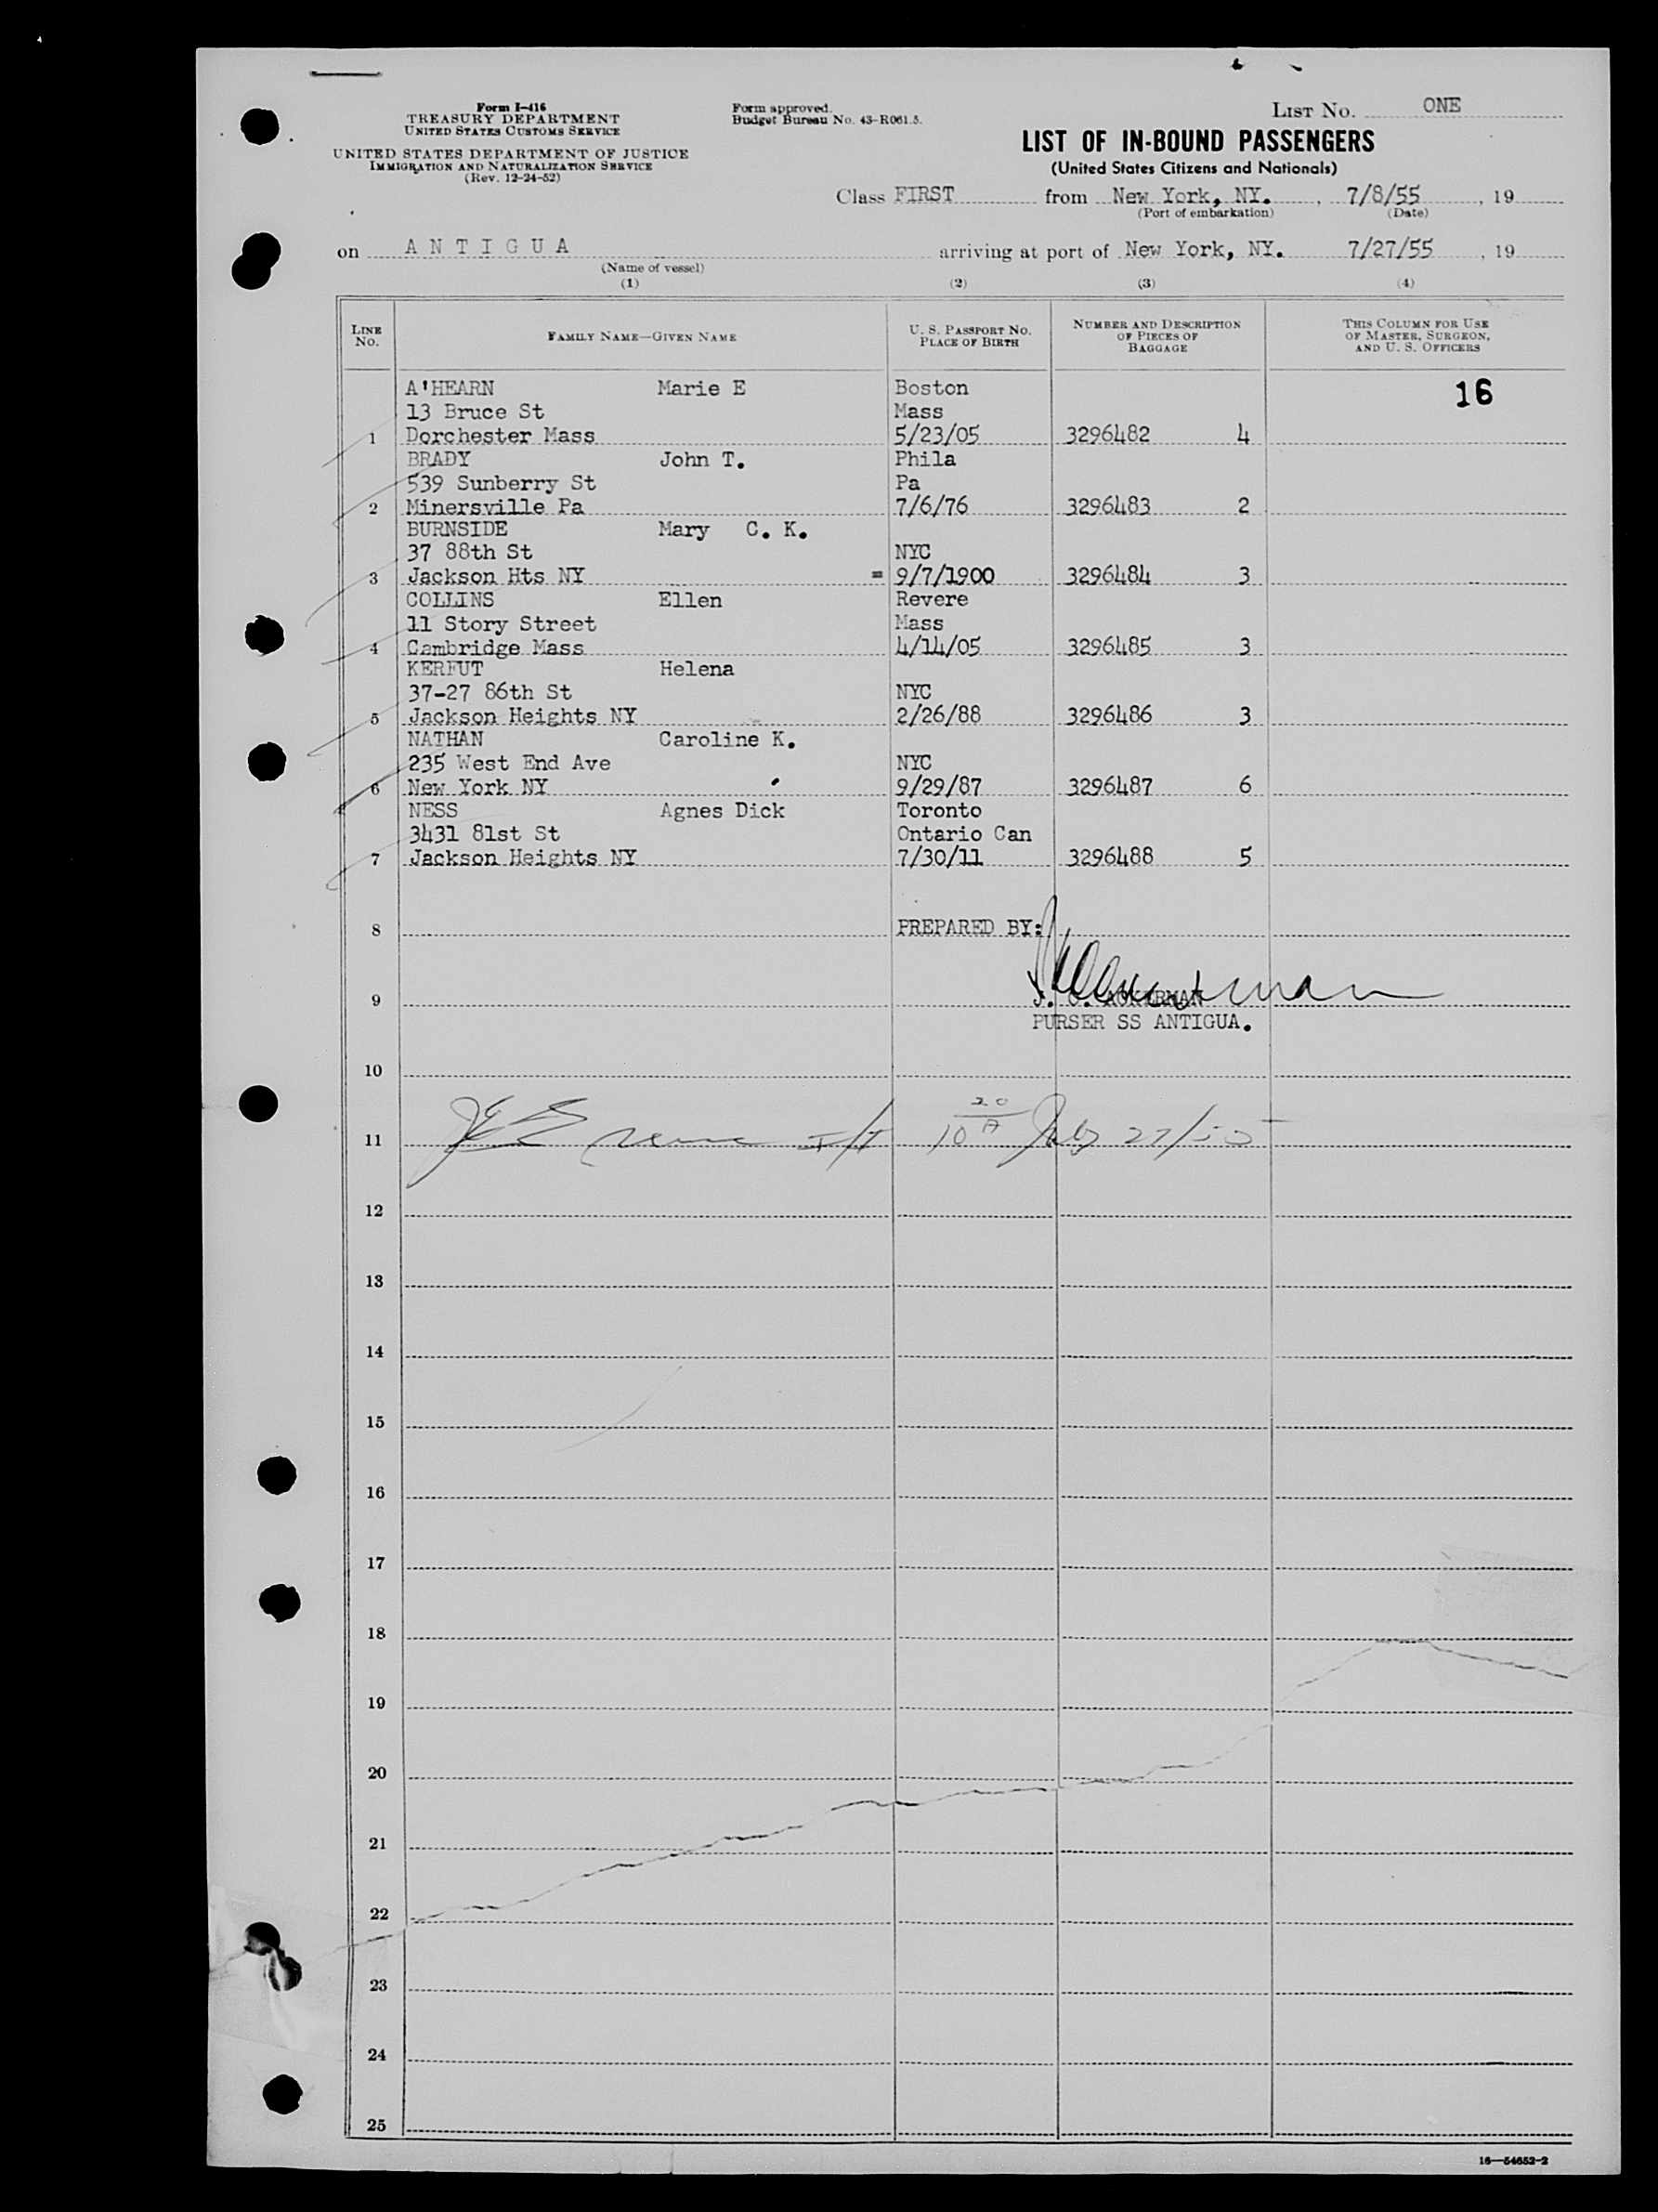 Form I-416
TREASURY DEPARTMENT
UNITED STATES CUSTOMS SERVICE
UNITED STATES DEPARTMENT OF JUSTICE
IMMIGRATION AND NATURALIZATION SERVICE
(Rev. 12-24-52)
Form approved.
Budget Bureau No. 43-R061.5.
LIST NO. ONE
LIST OF IN-BOUND PASSENGERS
(United States Citizens and Nationals)
Class FIRST from New York, NY. , 7/8/55 , 19
(Port of embarkation) (Date)
on A N T I G U A arriving at port of New York, NY. 7/27/55 , 19
(Name of vessel)
(1) (2) (3) (4)
LINE NO. FAMILY NAME—GIVEN NAME U. S. PASSPORT NO. PLACE OF BIRTH NUMBER AND DESCRIPTION OF PIECES OF BAGGAGE THIS COLUMN FOR USE OF MASTER, SURGEON, AND U. S. OFFICERS
A'HEARN Marie E Boston 16
13 Bruce St Mass
1 Dorchester Mass 5/23/05 3296482 4
BRADY John T. Phila
539 Sunberry St Pa
2 Minersville Pa 7/6/76 3296483 2
BURNSIDE Mary C. K.
37 88th St NYC
3 Jackson Hts NY = 9/7/1900 3296484 3
COLLINS Ellen Revere
11 Story Street Mass
4 Cambridge Mass 4/14/05 3296485 3
KERFUT Helena
37-27 86th St NYC
5 Jackson Heights NY 2/26/88 3296486 3
NATHAN Caroline K.
235 West End Ave NYC
6 New York NY 9/29/87 3296487 6
NESS Agnes Dick Toronto
3431 81st St Ontario Can
7 Jackson Heights NY 7/30/11 3296488 5
8 PREPARED BY:
9 J. C. ACKERMAN
PURSER SS ANTIGUA.
10
11 10 20 A July 27/55
12
13
14
15
16
17
18
19
20
21
22
23
24
25
16—54652-2